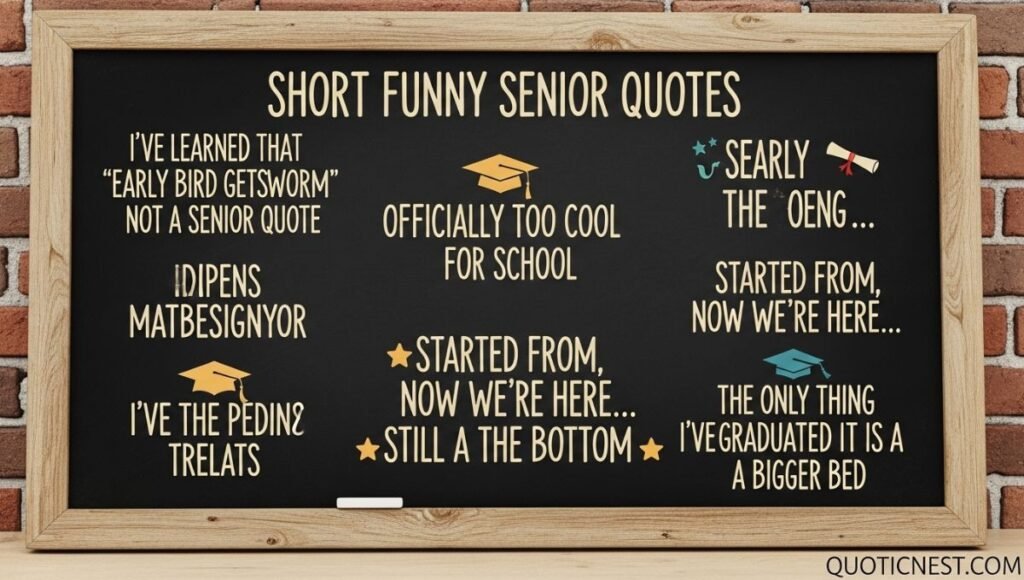 SHORT FUNNY SENIOR QUOTES
I'VE LEARNED THAT
"EARLY BIRD GETSWORM"
NOT A SENIOR QUOTE
IDIPENS
MATBESIGNYOR
I'VE THE PEDIN?
TRELATS
OFFICIALLY TOO COOL
FOR SCHOOL
STARTED FROM,
NOW WE'RE HERE...
STILL A THE BOTTOM
SEARLY
THE OENG...
STARTED FROM,
NOW WE'RE HERE...
THE ONLY THING
I'VEGRADUATED IT IS A
A BIGGER BED
QUOTICNEST.COM